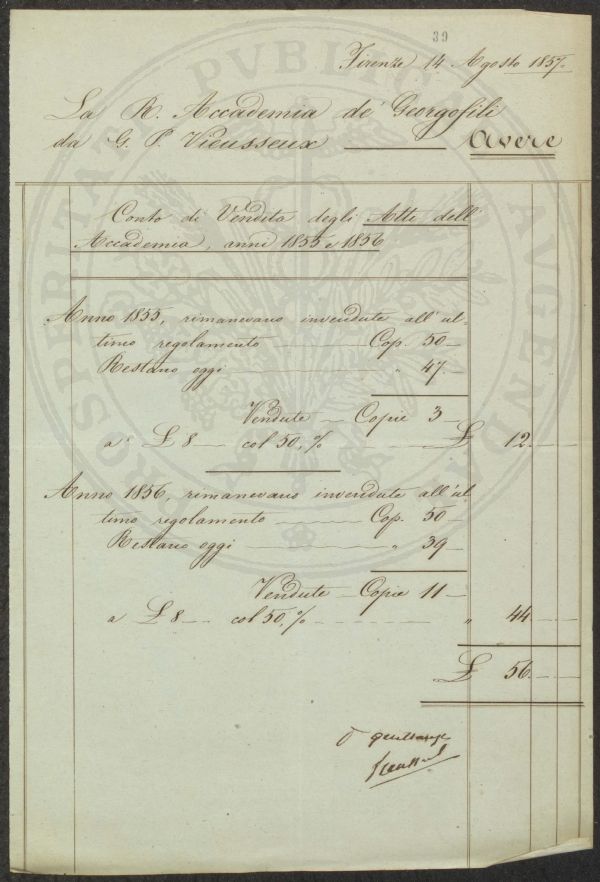 39
Firenze 14 Agosto 1857.
La R. Accademia de' Georgofili
da G. P. Vieusseux ——— Avere
Conto di Vendita degli Atti dell'
Accademia, anni 1855 e 1856
Anno 1855, rimanevano invendute all'ul-
timo regolamento ——— Cop. 50 —
Restano oggi ——— " 47 —
Vendute — Copie 3 —
a £ 8 — col 50,% — £ 12 —
Anno 1856, rimanevano invendute all'ul
timo regolamento ——— Cop. 50 —
Restano oggi ——— " 39 —
Vendute — Copie 11 —
a £ 8 — col 50,% — " 44 —
£ 56 —
PROSPERITATI PVBLICAE AVGENDAE